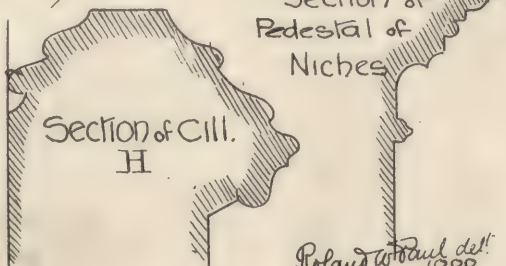 Section of
Pedestal of
Niches
Section of Cill.
H
Roland W Paul del!